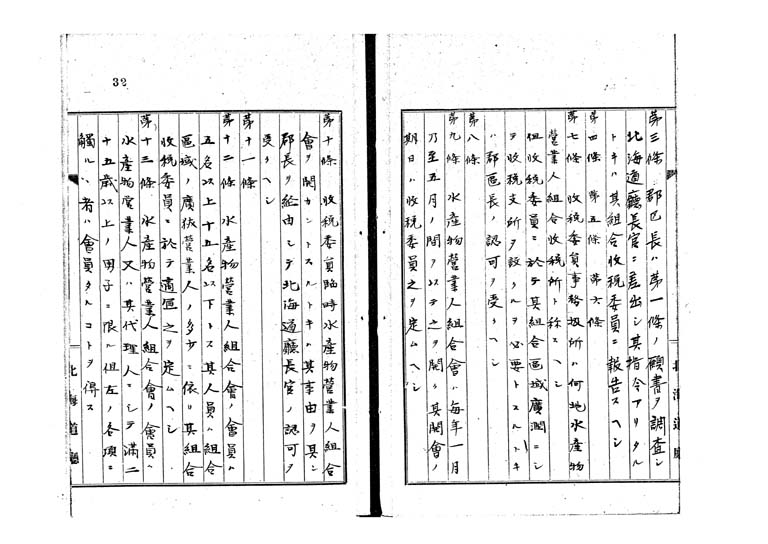 第三條 郡区長ハ第一條ノ願書ヲ調査シ
北海道廳長官ニ差出シ其指令アリタル
トキハ其組合收税委員ニ報告スヘシ
第四條 第五條 第六條
第七條 收税委員事務扱所ハ何地水産物
營業人組合收税所ト称スヘシ
但收税委員ニ於テ其組合區域廣濶ニシ
テ收税支所ヲ設クルヲ必要トスルトキ
ハ郡區長ノ認可ヲ受クヘシ
第八條
第九條 水産物營業人組合會ハ毎年一月
乃至五月ノ間ヲ以テ之ヲ開ク其開會ノ
期日ハ收税委員之ヲ定ムヘシ
北海道廳
32
第十條 收税委員臨時水産物營業人組合
會ヲ開カントスルトキハ其事由ヲ具シ
郡長ヲ経由シテ北海道廳長官ノ認可ヲ
受クヘシ
第十一條
第十二條 水産物營業人組合會ノ會員ハ
五名以上十五名以下トス其人員ハ組合
區域ノ廣狹營業人ノ多少ニ依リ其組合
收税委員ニ於テ適宜之ヲ定ムヘシ
第十三條 水産物營業人組合會ノ會員ハ
水産物營業人又ハ其代理人ニシテ滿二
十五歳以上ノ男子ニ限ル但左ノ各項ニ
觸ルヽ者ハ會員タルコトヲ得ス
北海道廳